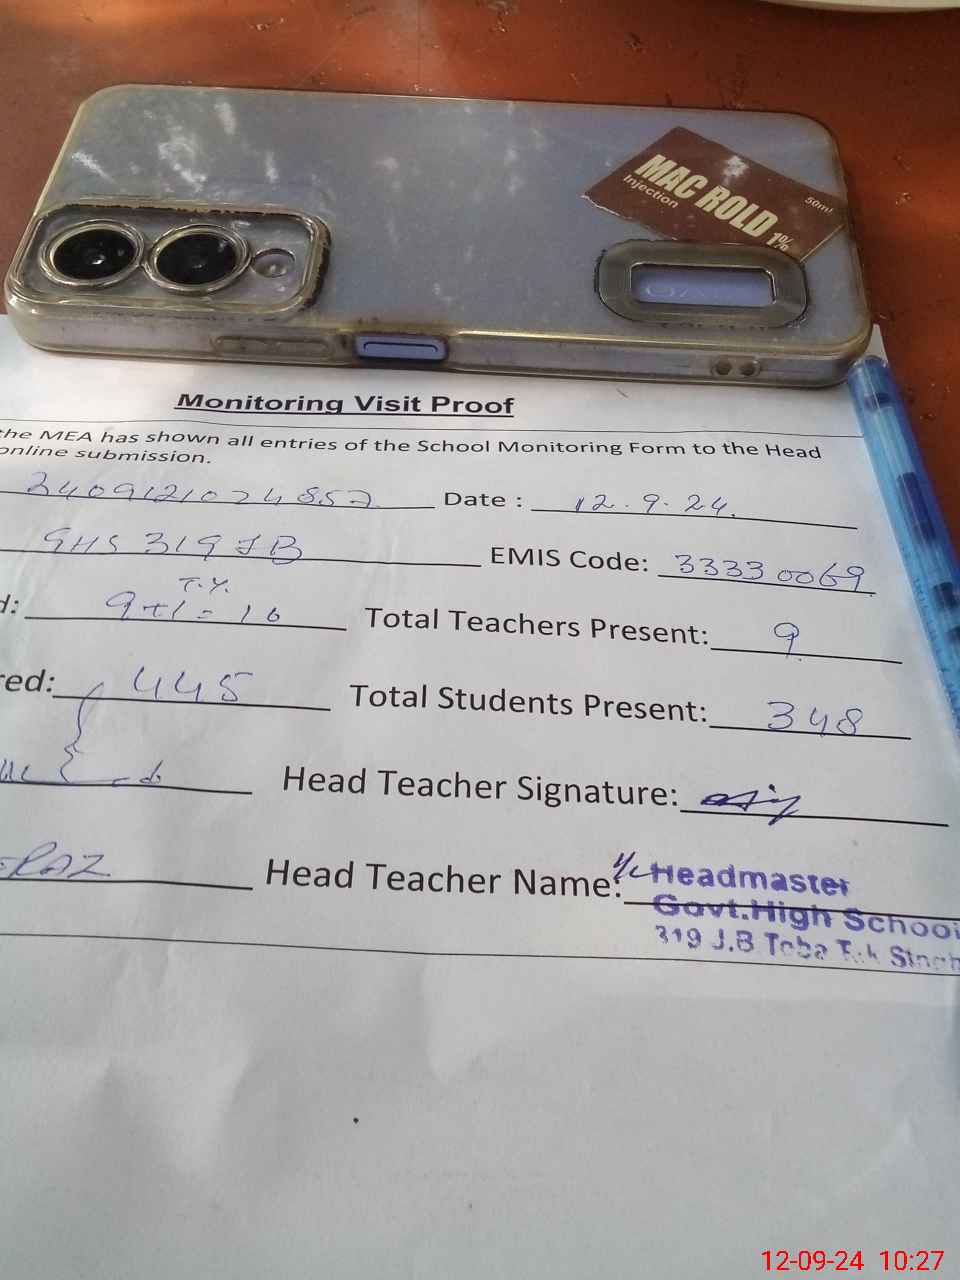 MAC ROLD 1%
Injection
50ml
Monitoring Visit Proof
the MEA has shown all entries of the School Monitoring Form to the Head
online submission.
Date : 12.9.24.
GHS 319 JB EMIS Code: 33330069
T.Y.
d: 9+1=10 Total Teachers Present: 9
red: 445 Total Students Present: 348
Head Teacher Signature:
Head Teacher Name: I/C Headmaster
Govt.High School
319 J.B Toba Tek Singh
12-09-24 10:27